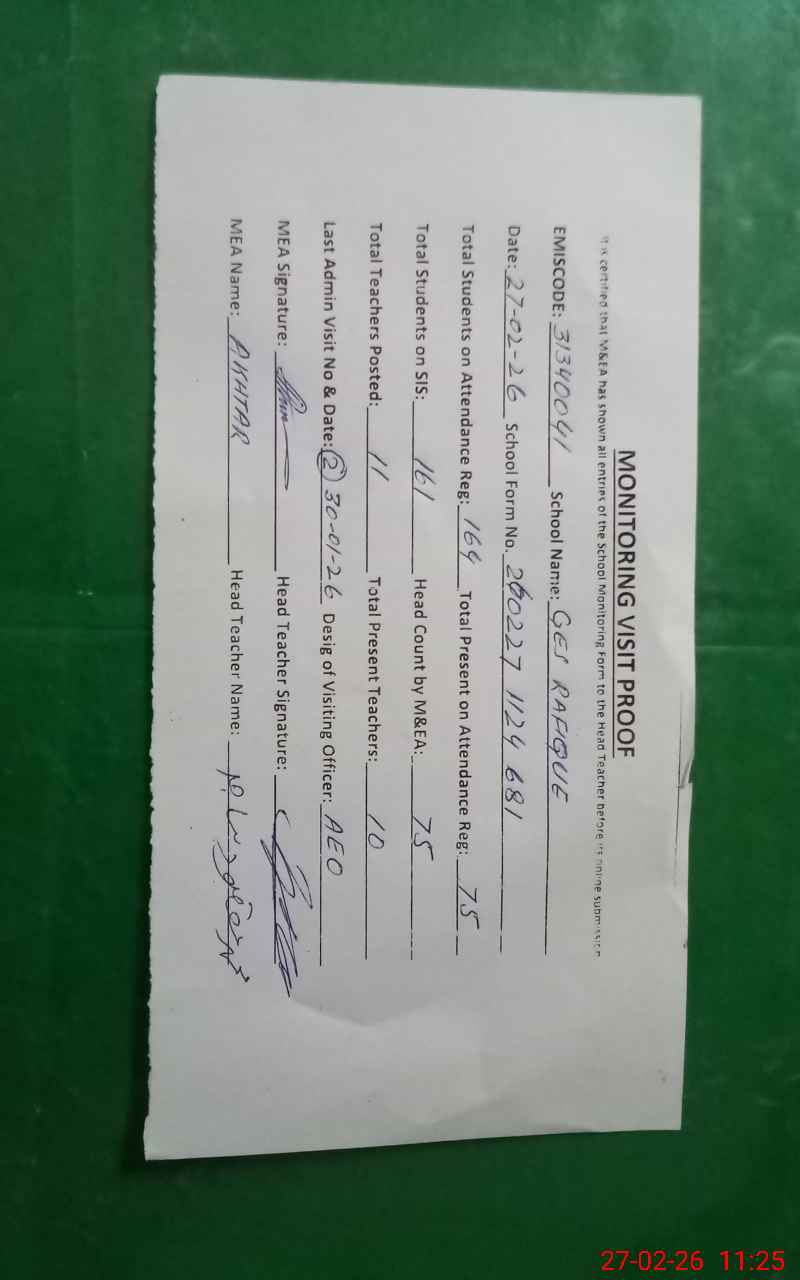 MONITORING VISIT PROOF
It is certified that M&EA has shown all entries of the School Monitoring Form to the Head Teacher before its online submission
EMISCODE: 31340041 School Name: GES RAFIQUE
Date: 27-02-26 School Form No. 260227 1124 681
Total Students on Attendance Reg: 164 Total Present on Attendance Reg: 75
Total Students on SIS: 161 Head Count by M&EA: 75
Total Teachers Posted: 11 Total Present Teachers: 10
Last Admin Visit No & Date: (2) 30-01-26 Desig of Visiting Officer: AEO
MEA Signature: Head Teacher Signature:
MEA Name: AKHTAR Head Teacher Name:
27-02-26 11:25